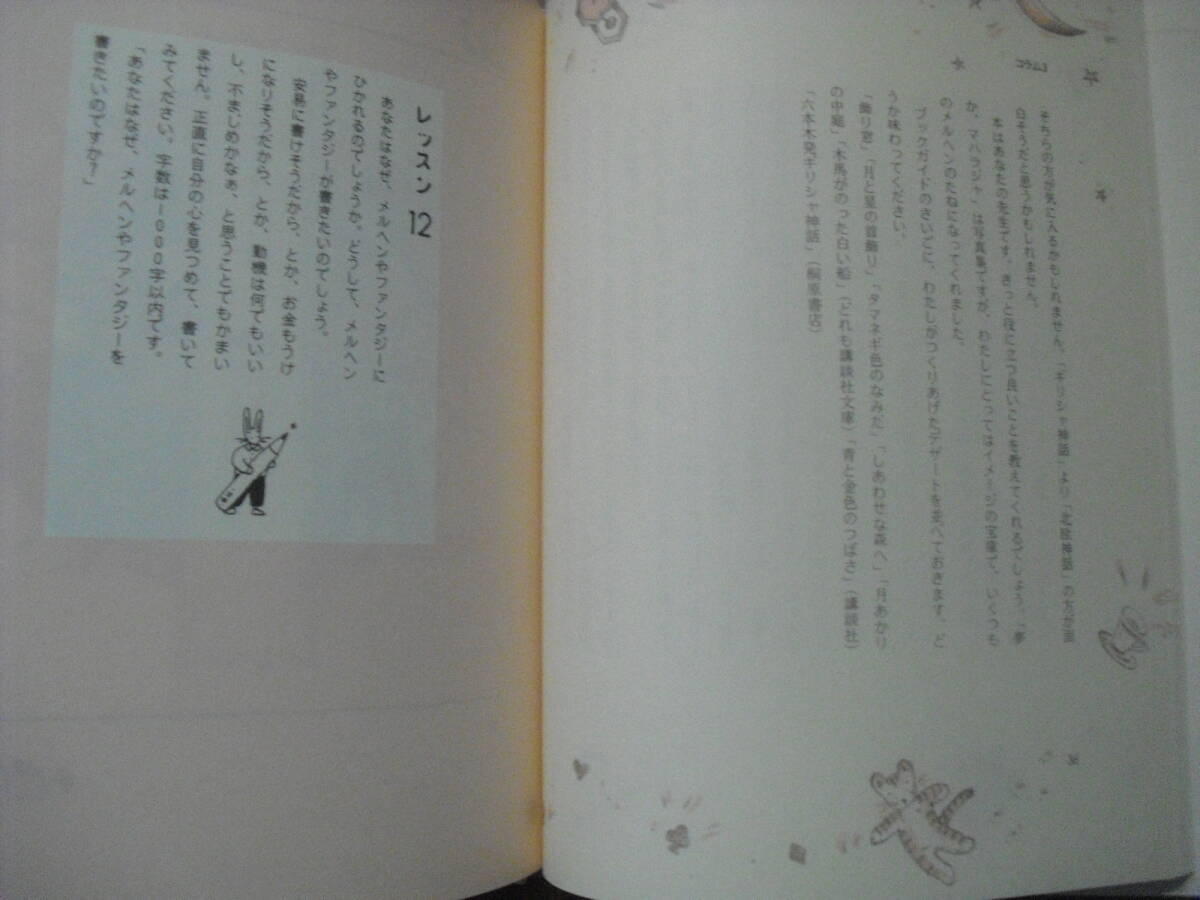 コラム3
そちらの方が気に入るかもしれません。「ギリシャ神話」より「北欧神話」の方が面
白そうだと思うかもしれません。
本はあなたの先生です。きっと役に立つ良いことを教えてくれるでしょう。「夢
か、マハラジャ」は写真集ですが、わたしにとってはイメージの宝庫で、いくつも
のメルヘンのたねになってくれました。
ブックガイドのさいごに、わたしがつくりあげたデザートを並べておきます。ど
うか味わってください。
「飾り窓」「月と星の首飾り」「タマネギ色のなみだ」「しあわせな森へ」「月あかり
の中庭」「木馬がのった白い船」（どれも講談社文庫）「青と金色のつばさ」（講談社）
「六本木発ギリシャ神話」（桐原書店）
レッスン 12
あなたはなぜ、メルヘンやファンタジーに
ひかれるのでしょうか。どうして、メルヘン
やファンタジーが書きたいのでしょう。
安易に書けそうだから、とか、お金もうけ
になりそうだから、とか、動機は何でもいい
し、不まじめかなぁ、と思うことでもかまい
ません。正直に自分の心を見つめて、書いて
みてください。字数は1000字以内です。
「あなたはなぜ、メルヘンやファンタジーを
書きたいのですか？」